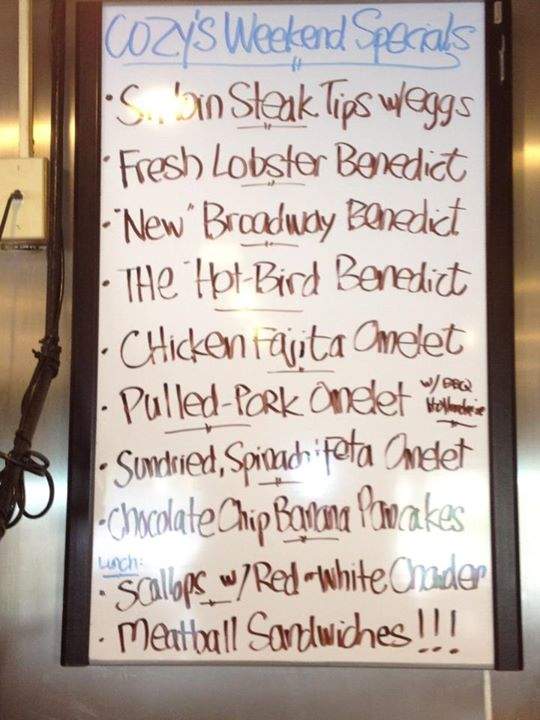 COZY'S Weekend Specials
• Sirloin Steak Tips w/eggs
• Fresh Lobster Benedict
• "New" Broadway Benedict
• THe "Hot-Bird Benedict
• CHicken Fajita Omelet
• Pulled-PoRk Omelet w/ BBQ Hollandaise
• Sundried, Spinach; Feta Omelet
• Chocolate Chip Banana Pancakes
Lunch:
• Scallops w/ Red-White Chowder
• Meatball Sandwiches!!!